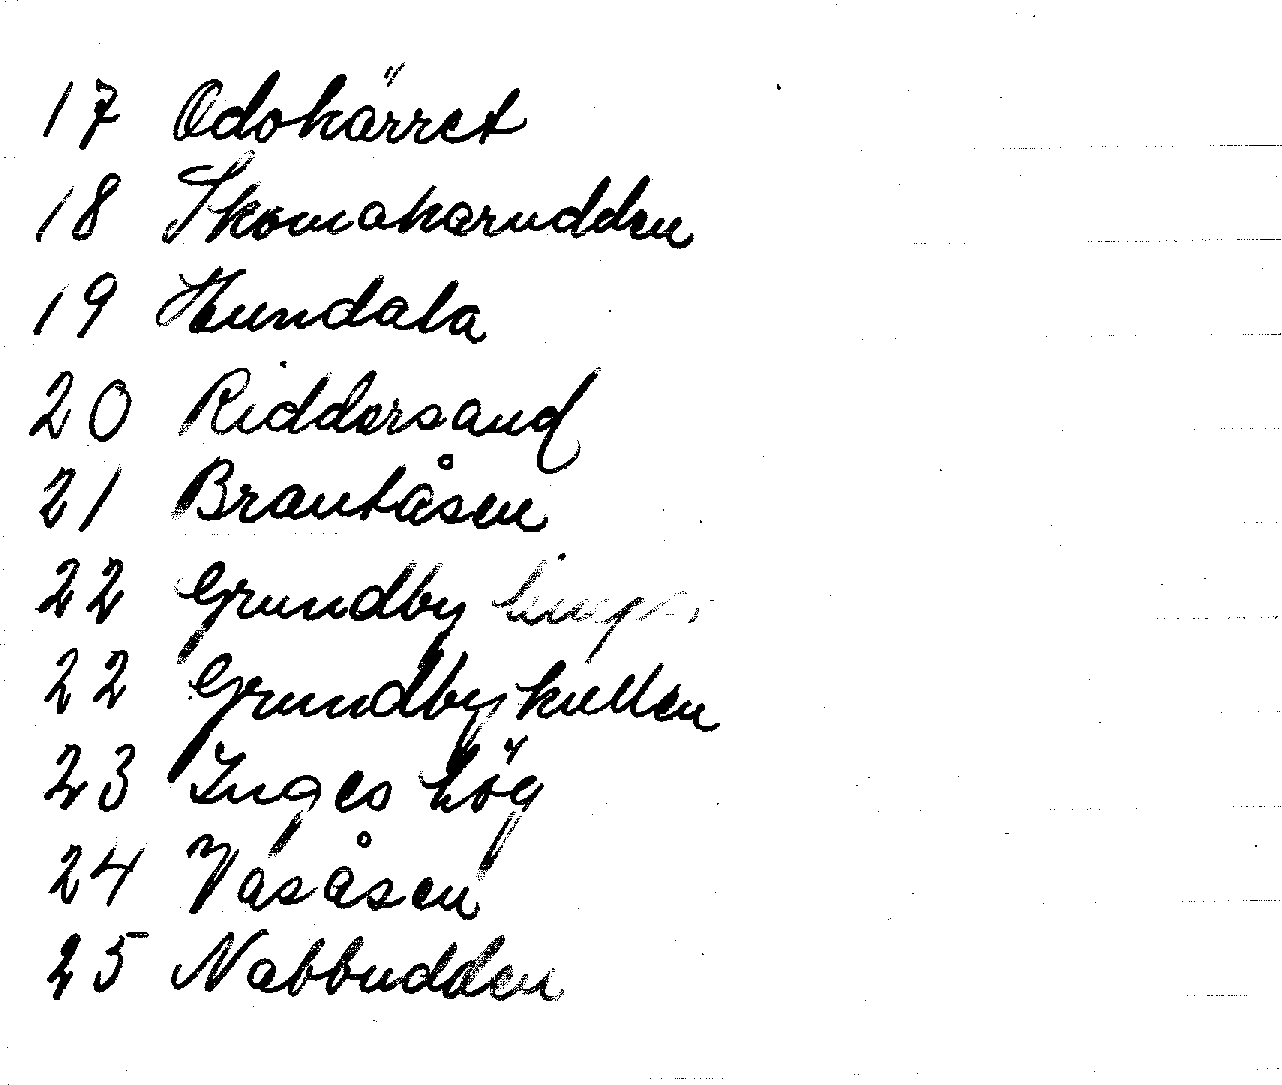 17 Odskärret
18 Skomakarudden
19 Hundala
20 Riddersand
21 Brantåsen
22 Grundby
22 Grundbykullen
23 Inges hög
24 Vasåsen
25 Nabbudden